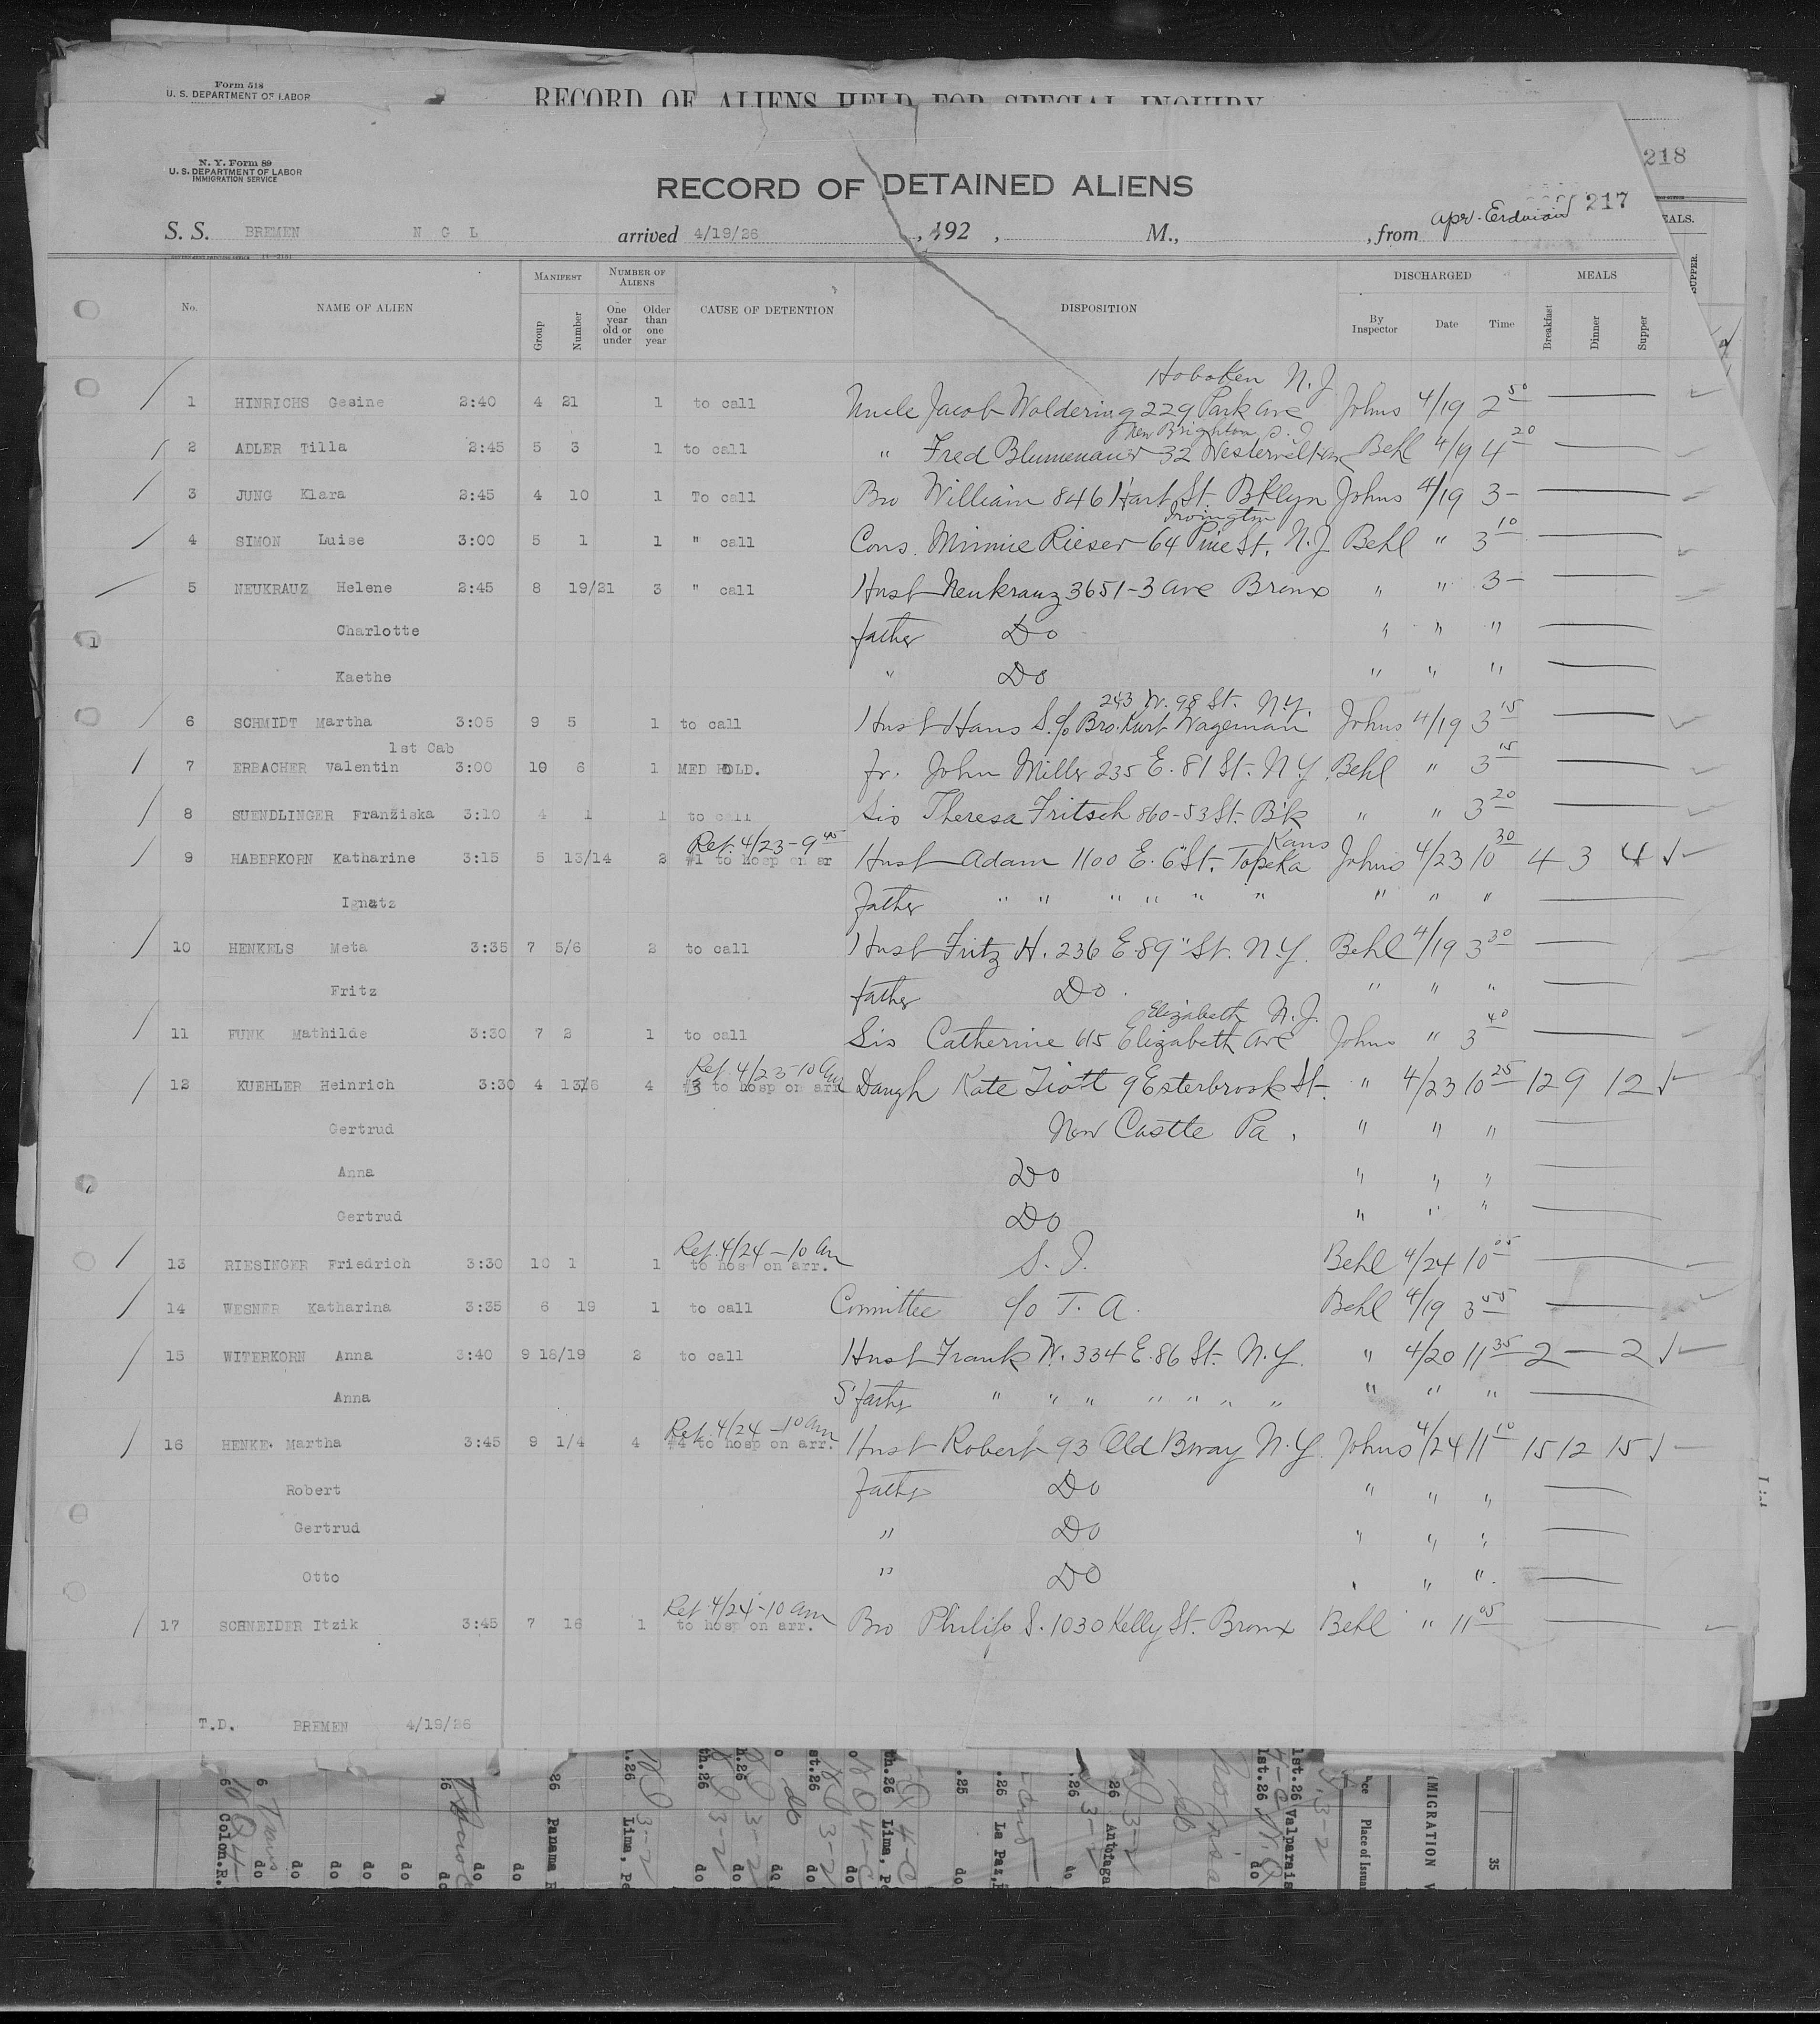 Form 518
U. S. DEPARTMENT OF LABOR
RECORD OF ALIENS HELD FOR SPECIAL INQUIRY
N. Y. Form 89
U. S. DEPARTMENT OF LABOR
IMMIGRATION SERVICE
218
RECORD OF DETAINED ALIENS
217
S. S. BREMEN N G L arrived 4/19/26 , 192 , M., , from
No. NAME OF ALIEN MANIFEST Group Number NUMBER OF ALIENS One year old or under Older than one year CAUSE OF DETENTION DISPOSITION DISCHARGED By Inspector Date Time MEALS Breakfast Dinner Supper
Hoboken N.J.
1 HINRICHS Gesine 2:40 4 21 1 to call Uncle Jacob Woldering 229 Park Ave Johns 4/19 2 50
New Brighton S.I.
2 ADLER Tilla 2:45 5 3 1 to call " Fred Blumenauer 32 Westervelt Ave Behl 4/19 4 20
3 JUNG Klara 2:45 4 10 1 To call Bro William 846 Hart St. Bklyn Johns 4/19 3 -
Irvington
4 SIMON Luise 3:00 5 1 1 " call Cous. Minnie Rieser 64 Pine St. N.J. Behl " 3 10
5 NEUKRAUZ Helene 2:45 8 19/21 3 " call Husb Neukrauz 3651-3 Ave Bronx " " 3 -
Charlotte father Do " " "
Kaethe " Do " " "
243 W. 98 St. N.Y.
6 SCHMIDT Martha 3:05 9 5 1 to call Husb Hans S. c/o Bro. Kurt Wageman Johns 4/19 3 15
1st Cab
7 ERBACHER Valentin 3:00 10 6 1 MED HOLD. fr. John Miller 235 E. 81 St. N.Y. Behl " 3 15
8 SUENDLINGER Franziska 3:10 4 1 1 to call Sis Theresa Fritsch 860-53 St. Bk " " 3 20
Ret. 4/23-9 45 Kans
9 HABERKORN Katharine 3:15 5 13/14 2 #1 to hosp on ar Husb Adam 1100 E. 6" St. Topeka Johns 4/23 10 30 4 3 4
Ignatz Father " " " " " " " " "
10 HENKELS Meta 3:35 7 5/6 2 to call Husb Fritz H. 236 E 89" St. N.Y. Behl 4/19 3 30
Fritz father Do. " " "
Elizabeth N.J.
11 FUNK Mathilde 3:30 7 2 1 to call Sis Catherine 615 Elizabeth Ave Johns " 3 40
Ret. 4/23-10 Am
12 KUEHLER Heinrich 3:30 4 13/6 4 #3 to hosp on arr Daugh Kate 9 Esterbrook St. " 4/23 10 25 12 9 12
Gertrud New Castle Pa. " " "
Anna Do " " "
Gertrud Do " " "
Ret. 4/24-10 Am
13 RIESINGER Friedrich 3:30 10 1 1 to hosp on arr. S. I. Behl 4/24 10 05
14 WESNER Katharina 3:35 6 19 1 to call Committee c/o T. A. Behl 4/19 3 55
15 WITERKORN Anna 3:40 9 18/19 2 to call Husb Frank W. 334 E. 86 St. N.Y. " 4/20 11 35 2 — 2
Anna S'father " " " " " " " " " "
Ret. 4/24-10 am
16 HENKE. Martha 3:45 9 1/4 4 #4 to hosp on arr. Husb Robert 93 Old Bway N.Y. Johns 4/24 11 10 15 12 15
Robert Father Do " " "
Gertrud " Do " " "
Otto " Do " " "
Ret 4/24-10 am
17 SCHNEIDER Itzik 3:45 7 16 1 to hosp on arr. Bro Philip S. 1030 Kelly St. Bronx Behl " 11 05
T.D. BREMEN 4/19/26